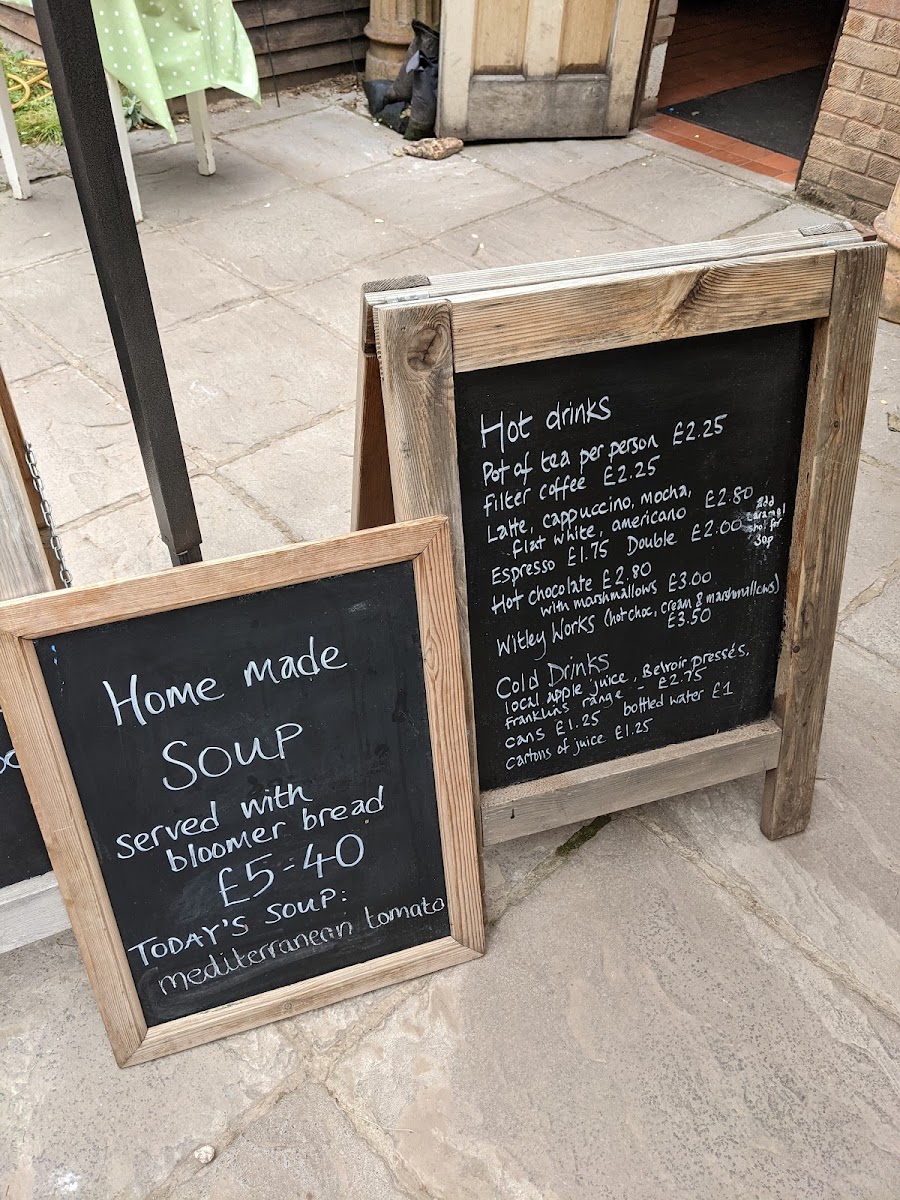 Home made
Soup
served with
bloomer bread
£5-40
TODAY'S SOUP:
mediterranean tomato
Hot drinks
Pot of tea per person £2.25
Filter coffee £2.25
Latte, cappuccino, mocha,
flat white, americano £2.80
add
caramel
shot for
30p
Espresso £1.75 Double £2.00
Hot chocolate £2.80
with marshmallows £3.00
Witley Works (hot choc, cream & marshmallows)
£3.50
Cold Drinks
local apple juice, Belvoir Pressés,
Franklins range - £2.75
cans £1.25 bottled water £1
cartons of juice £1.25